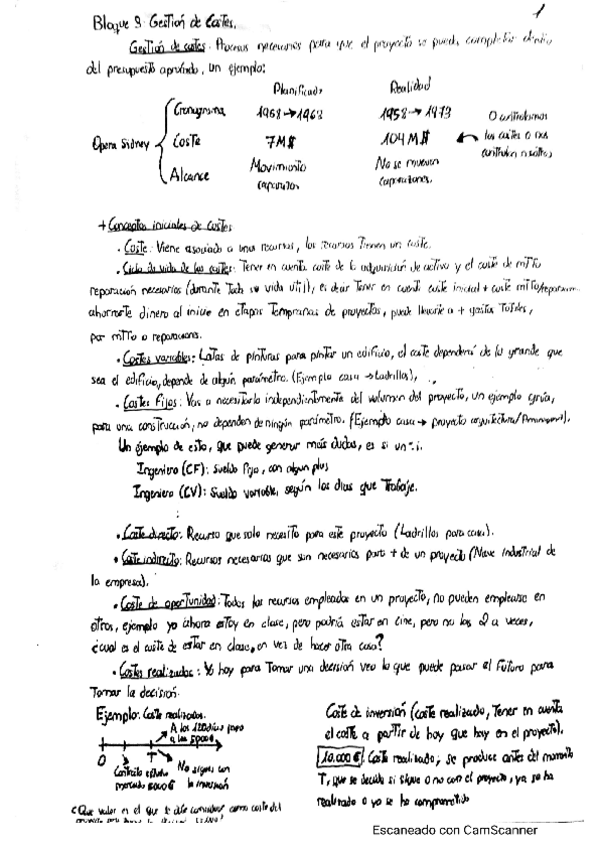 1
Bloque 9: Gestión de Costes.
Gestión de costes: Procesos necesarios para que el proyecto se pueda completar dentro
del presupuesto aprobado, un ejemplo:
Planificado Realidad
Cronograma 1958→1963 1958→1973 O controlamos
Opera Sidney Coste 7M$ 104M$ los costes o nos
controlan nosotros
Alcance Movimiento No se mueven
caparazones.
+ Conceptos iniciales de costes
• Coste: Viene asociado a unos recursos, los recursos tienen un coste.
• Ciclo de vida de los costes: Tener en cuenta coste de la adquisición de activo y el coste de mtto
reparación necesarios (durante toda su vida util), es decir tener en cuenta coste inicial + coste mtto/reparación
ahorrarte dinero al inicio en etapas tempranas de proyectos, puede llevarte a + gastos
por mtto o reparaciones.
• Costes variables: Latas de pinturas para pintar un edificio, el coste dependerá de lo grande que
sea el edificio, depende de algún parámetro. (Ejemplo casa → Ladrillos),
• Costes Fijos: Vas a necesitarlo independientemente del volumen del proyecto, un ejemplo grúa,
para una construcción, no dependen de ningún parámetro. (Ejemplo casa → proyecto arquitectura/
Un ejemplo de esto, que puede generar más dudas, es si un
Ingeniero (CF): Sueldo fijo, con algun plus
Ingeniero (CV): Sueldo variable, según los días que trabaje.
• Coste directo: Recurso que solo necesito para este proyecto (Ladrillos para casa).
• Coste indirecto: Recursos necesarios que son necesarios para + de un proyecto (Nave Industrial de
la empresa).
• Coste de oportunidad: Todos los recursos empleados en un proyecto, no pueden emplearse en
otros, ejemplo yo ahora estoy en clase, pero podría estar en cine, pero no los 2 a veces,
¿cual es el coste de estar en clase, en vez de hacer otra cosa?
• Costes realizados: Yo hoy para tomar una decisión veo lo que puede pasar el futuro para
tomar la decisión.
Ejemplo: Coste realizados.
A los 120días pago
a los 5000€
0 T No sigues con
la inversión
Contrato estudio
mercado 5000€
¿Que valor es el que se debe considerar como coste del
Coste de inversión (coste realizado, tener en cuenta
el coste a partir de hoy que hay en el proyecto).
10.000€ Coste realizado; se produce antes del momento
T, que se decide si sigue o no con el proyecto, ya se ha
realizado o ya se ha comprometido
Escaneado con CamScanner